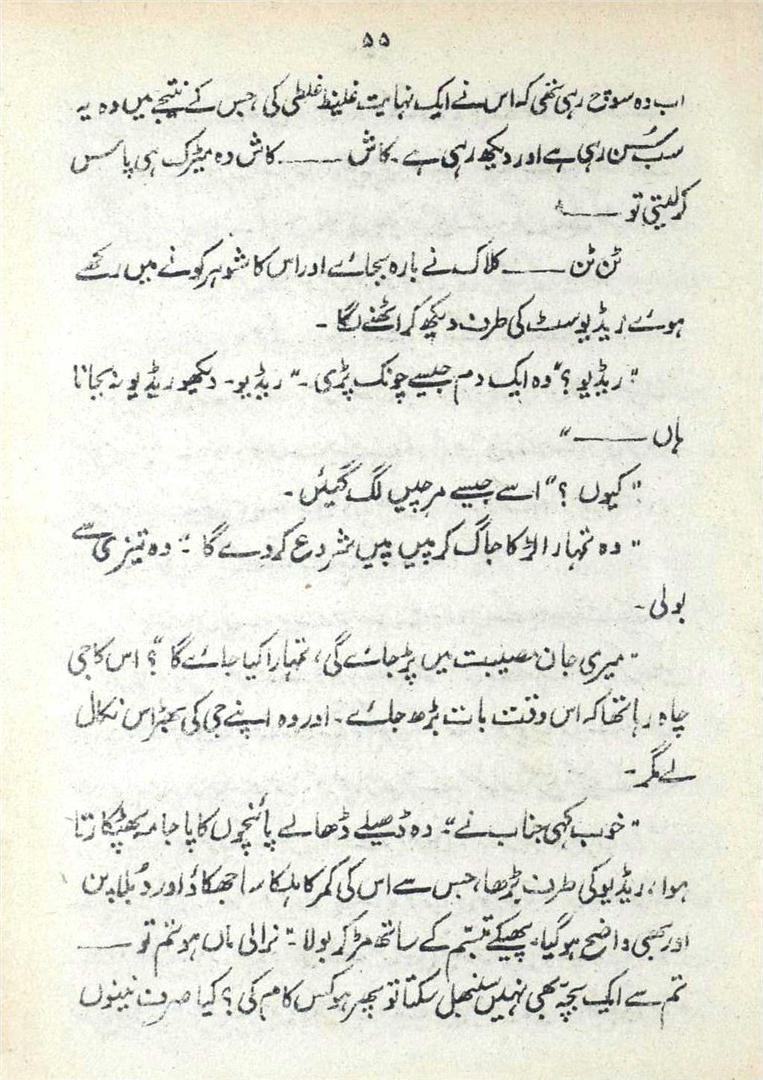 ۵۵
اب وہ سوچ رہی تھی کہ اس نے ایک نہایت غلیظ غلطی کی جس کے نتیجے میں وہ یہ
سب سُن رہی ہے اور دیکھ رہی ہے ۔ کاش ——— کاش وہ میٹرک ہی پاسس
کر لیتی تو ———
ٹن ٹن ——— کلاک نے بارہ بجائے اور اس کا شوہر کونے میں رکھے
ہوئے ریڈیو سٹ کی طرف دیکھ کر اٹھنے لگا ۔
" ریڈیو ؟" وہ ایک دم جیسے چونک پڑی ۔" ریڈیو ۔ دیکھو ریڈیو نہ بجانا
ہاں ——— "
" کیوں ؟" اسے جیسے مرچیں لگ گئیں ۔
" وہ تمہارا لڑکا جاگ کر پیں پیں شروع کر دے گا "۔ وہ تیزی سے
بولی ۔
" میری جان مصیبت میں پڑ جائے گی ، تمہارا کیا جائے گا "؟ اس کا جی
چاہ رہا تھا کہ اس وقت بات بڑھ جائے ۔ اور وہ اپنے جی کی بھڑاس نکال
لے مگر ۔
" خوب کہی جناب نے "۔ وہ ڈھیلے ڈھالے پائنچوں کا پاجامہ پھٹکارتا
ہوا ، ریڈیو کی طرف بڑھا ، جس سے اس کی کمر کا ہلکا سا جھکاؤ اور دُبلا پن
اور بھی واضح ہو گیا ۔ پھیکے تبسّم کے ساتھ مڑ کر بولا " نرالی ماں ہو تم تو ———
تم سے ایک بچہ بھی نہیں سنبھل سکتا تو پھر ہو کس کام کی ؟ کیا صرف نینوں